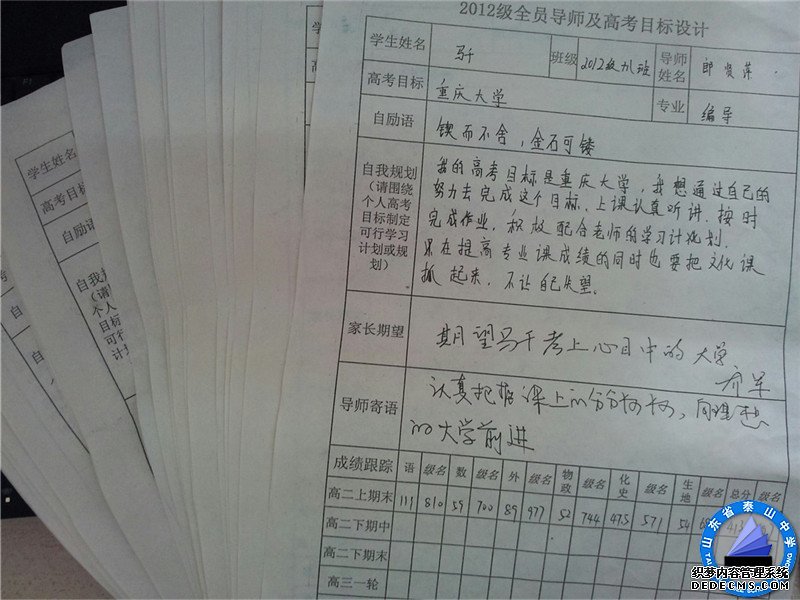 2012级全员导师及高考目标设计
学生姓名 马千 班级 2012级九班 导师姓名 郎贤萍
高考目标 重庆大学 专业 编导
自励语 锲而不舍,金石可镂
自我规划
(请围绕
个人高考
目标制定
可行学习
计划或规
划)
我的高考目标是重庆大学,我想通过自己的
努力去完成这个目标,上课认真听讲,按时
完成作业,积极配合老师的学习计划,
在提高专业课成绩的同时也要把文化课
抓起来,不让自己失望。
家长期望 期望马千考上心目中的大学
导师寄语 认真把握课上的分分秒秒,向理想
的大学前进
成绩跟踪 语 级名 数 级名 外 级名 物政 级名 化史 级名 生地 级名 总分 级名
高二上期末 111 810 59 700 89 977 52 744 47.5 571 54
高二下期中
高二下期末
高三一轮
学生姓名
高考目标
自励语
自我规
(请
个人
目标
可行
计划
自
山东省泰山中学
织梦内容管理系统
DEDECMS.COM